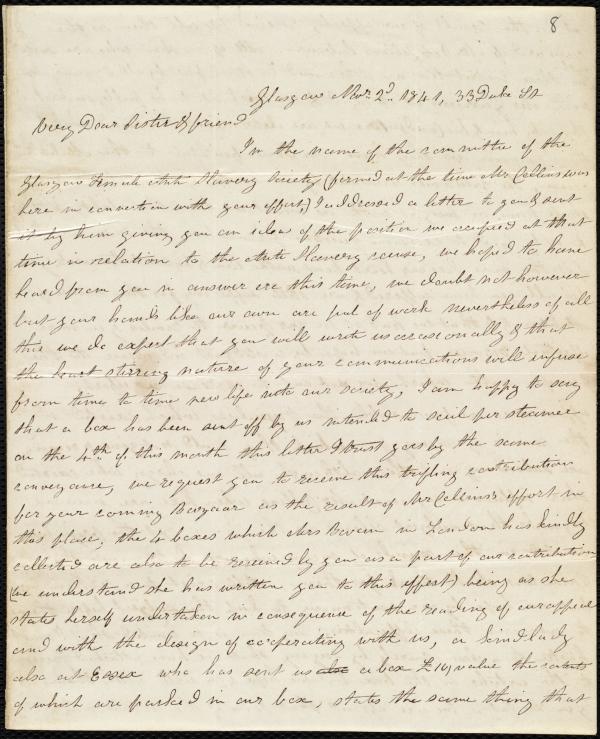 8
Glasgow Novr. 2d. 1841, 33 Duke St
Very Dear Sister & friend
In the name of the committee of the
Glasgow Female Anti Slavery Society (formed at the time Mr Collins was
here in connection with your effort,) I addressed a letter to you & sent
it by him giving you an idea of the position we occupied at that
time in relation to the Anti Slavery cause, we hoped to have
heard from you in answer ere this time, we doubt not however
but your hands like our own are full of work nevertheless of all
this we do expect that you will write us occasionally & that
the heart stirring nature of your communications will infuse
from time to time new life into our society, I am happy to say
that a box has been sent off by us intended to sail per steamer
on the 4th of this month this letter I trust goes by the same
conveyance, we request you to receive this trifling contribution
for your coming Bazaar as the result of Mr Collins's effort in
this place, the 4 boxes which Mrs in London has kindly
collected are also to be received by you as a part of our contribution
(we understand she has written you to this effect) being as she
states herself undertaken in consequence of the reading of our appeal
and with the design of cooperating with us, a kind lady
also at Essex who has sent us also a box £ value the contents
of which are packed in our box, states the same thing that